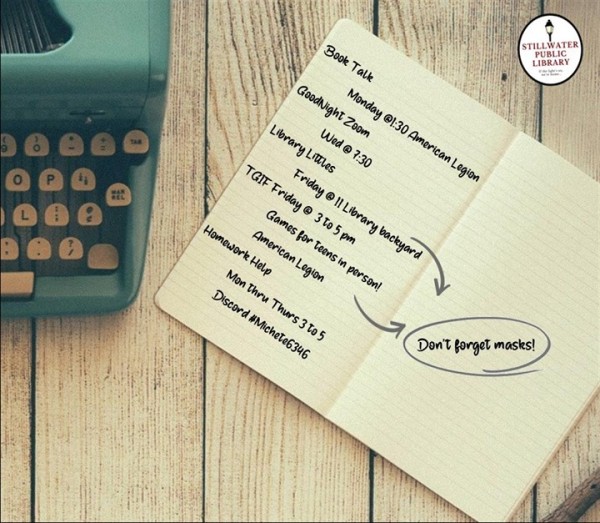 STILLWATER
PUBLIC
LIBRARY
Book Talk
Monday @1:30 American Legion
GoodNight Zoom
Wed @ 7:30
Library Littles
Friday @ 11 Library backyard
TGIF Friday @ 3 to 5 pm
Games for teens in person!
American Legion
Homework Help
Mon thru Thurs 3 to 5
Discord #Michele6346
Don't forget masks!
O P
L
TAB
MAR
REL